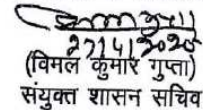 27/4/2020
(विमल कुमार गुप्ता)
संयुक्त शासन सचिव